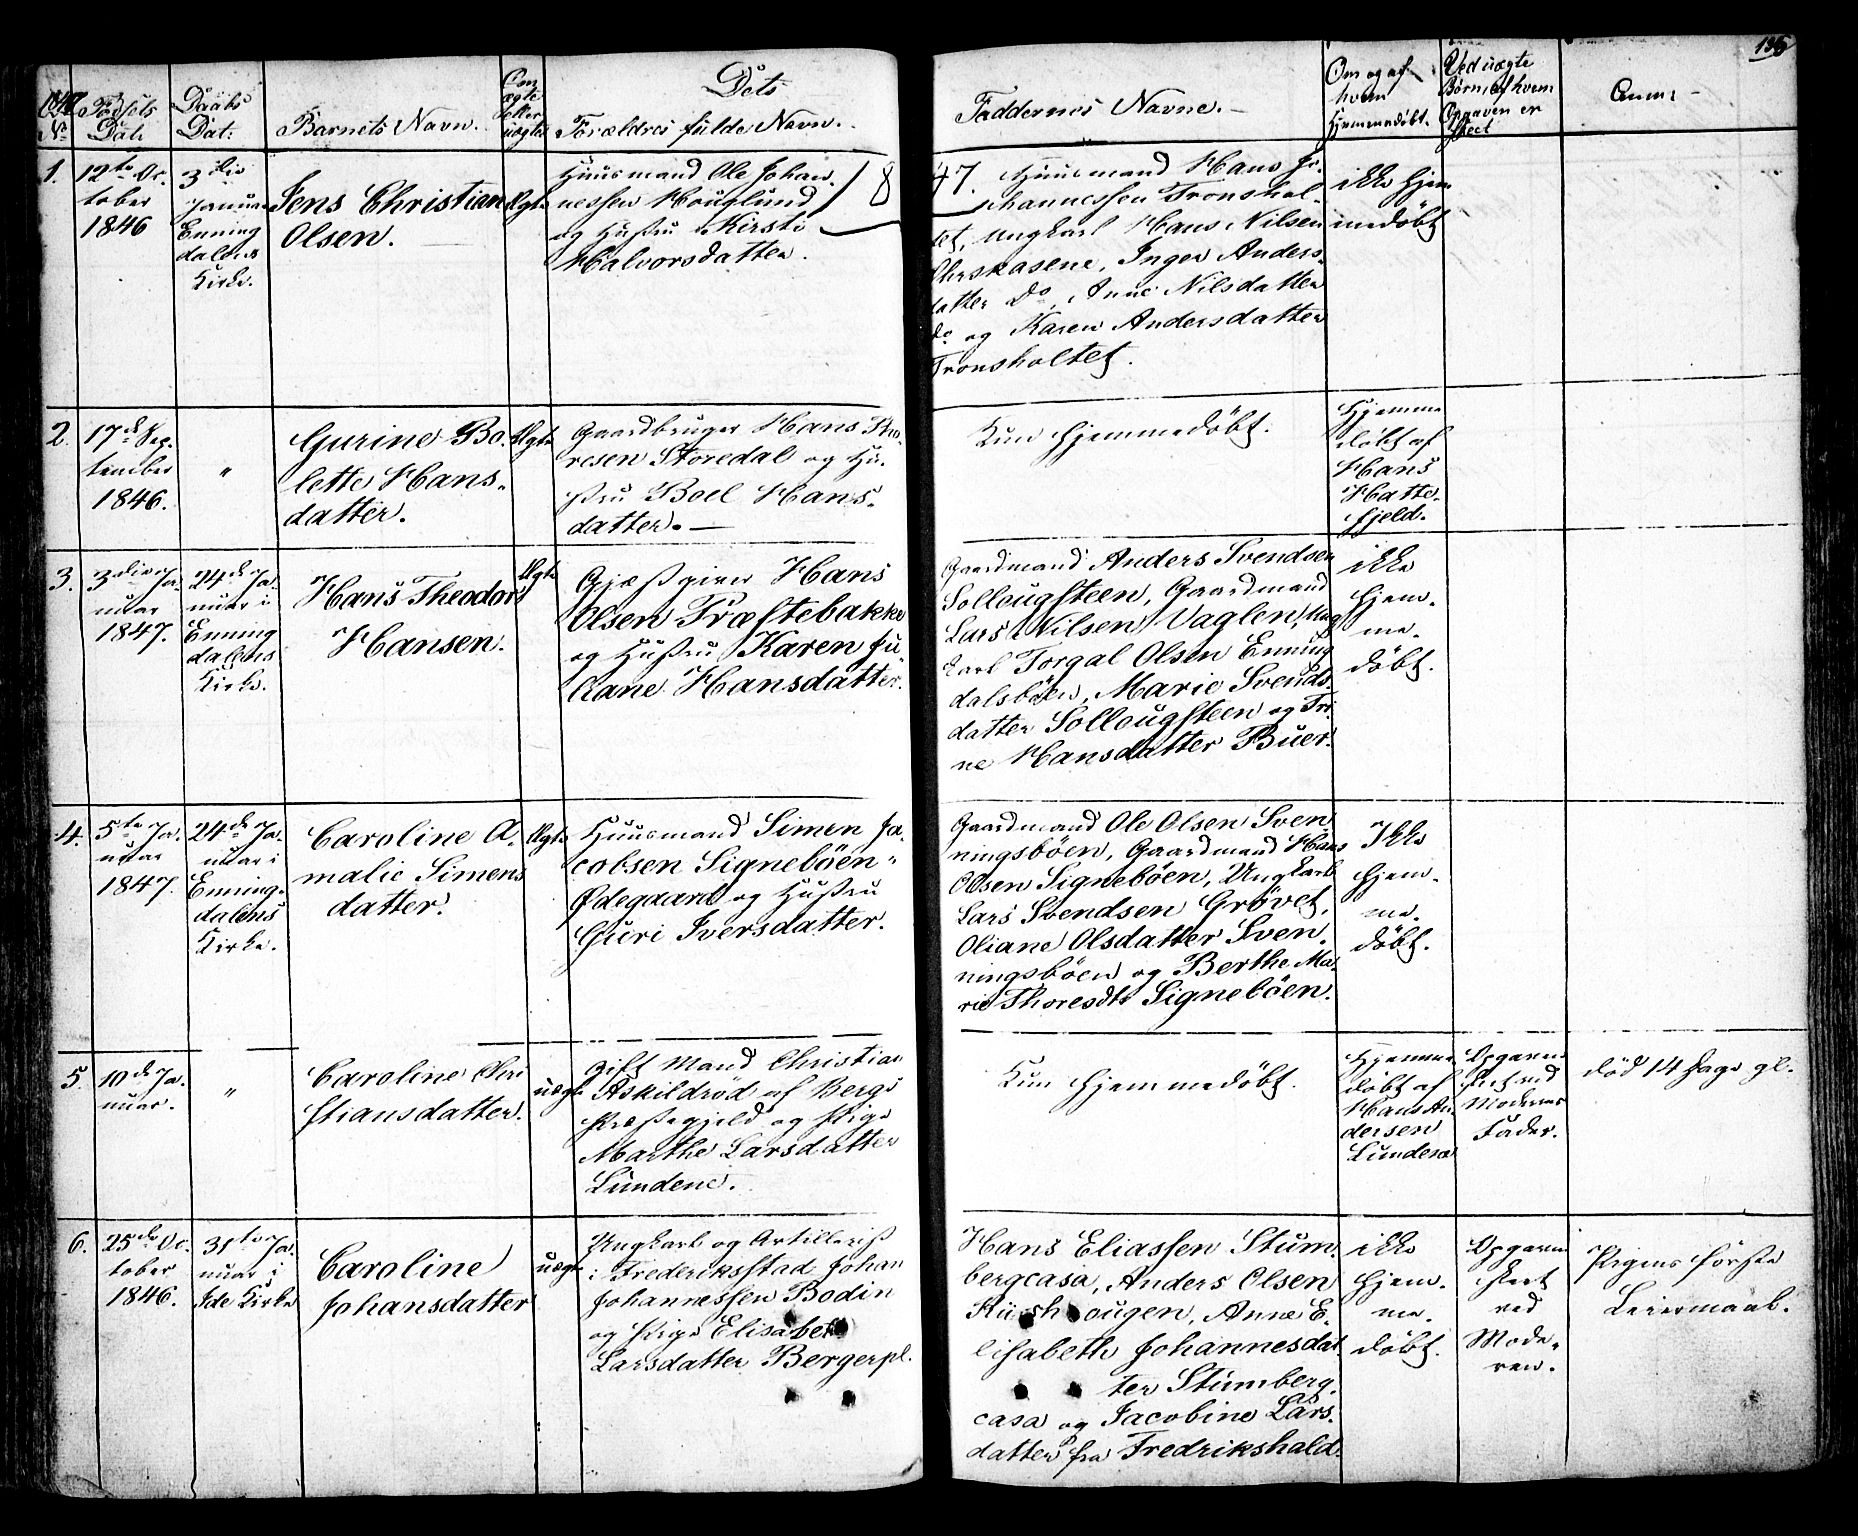 135
1847
No
Fødsels
Dat:
Daabs
Dat:
Barnets Navn.
Om
ægte
eller
uægte
Dets
Forældres fulde Navn.
Faddernes Navne.
Om og af
hvem
hjemmedøbt.
Ved uægte
Børn af hvem
Opgaven er
skeet
Anm:
1.
12te Oc-
tober
1846
3die
Januar
Enning
dalens
Kirke.
Jens Christian
Olsen.
Ægte
Huusmand Ole Johan-
nessen Houglund
og Hustru Kirsti
Halvorsdatter.
18
47. Huusmand Hans Jo-
hannessen Tronshol-
tet, Ungkarl Hans Nilsen
Inger Anders-
datter Do, Anne Nilsdatter
Do og Karen Andersdatter
Tronsholtet.
ikke hjem
medøbt
2.
17de Sep-
tember
1846.
"
Gurine Bo-
lette Hans-
datter.
Ægte
Gaardbruger Hans Tho-
resen Storedal og Hu-
stru Boel Hans-
datter.
Kun hjemmedøbt.
Hjemme
døbt af
Hans
Hatte-
fjeld.
3.
3die Ja-
nuar
1847.
24de Ja-
nuar i
Enning
dalens
Kirke.
Hans Theodor
Hansen.
Ægte
Gjæstgiver Hans
Olsen Præstebakke
og Hustru Karen Ju-
liane Hansdatter.
Gaardmand Anders Svendsen
Sollougsteen, Gaardmand
Lars Nilsen Vaglen, Ung
karl Torgal Olsen Enning
dalsbøen, Marie Svends-
datter Sollougsteen og Tri-
ne Hansdatter Buer.
ikke
hjem-
me-
døbt.
4.
5te Ja-
nuar
1847.
24de Ja-
nuar i
Enning-
dalens
Kirke.
Caroline A-
malie Simens
datter.
Ægte
Huusmand Simen Ja-
cobsen Signebøen-
Ødegaard og Hustru
Guri Iversdatter.
Gaardmand Ole Olsen Sven
ningsbøen, Gaardmand Hans
Olsen Signebøen, Ungkarl
Lars Svendsen Grøvet,
Oliane Olsdatter Sven-
ningsbøen og Berthe Ma-
rie Thoresdtr Signebøen.
Ikke
hjem-
me-
døbt.
5.
10de Ja-
nuar.
"
Caroline Chri
stiansdatter.
uægte
Gift Mand Christian
Askildrød af Bergs
Præstegjeld og Pige
Marthe Larsdatter
Lundene.
Kun hjemmedøbt.
Hjemme
døbt af
Hans An
dersen
Lundene
Opgaven
skeet ved
Moderens
Fader.
død 14 Dage gl.
6.
25de Oc-
tober
1846.
31te Ja-
nuar i
Ide Kirke
Caroline
Johansdatter
uægte
Ungkarl og Artillerist
i Frederiksstad Johan
Johannessen Bodin
og Pige Elisabet
Larsdatter Bergerpl.
Hans Eliassen Stum-
bergcasa, Anders Olsen
Anne E-
lisabeth Johannesdat
ter Stumberg-
casa og Jacobine Lars-
datter fra Fredrikshald.
ikke
hjem-
me-
døbt.
Opgaven
skeet
ved
Mode-
ren.
Pigens første
Leiermaal.